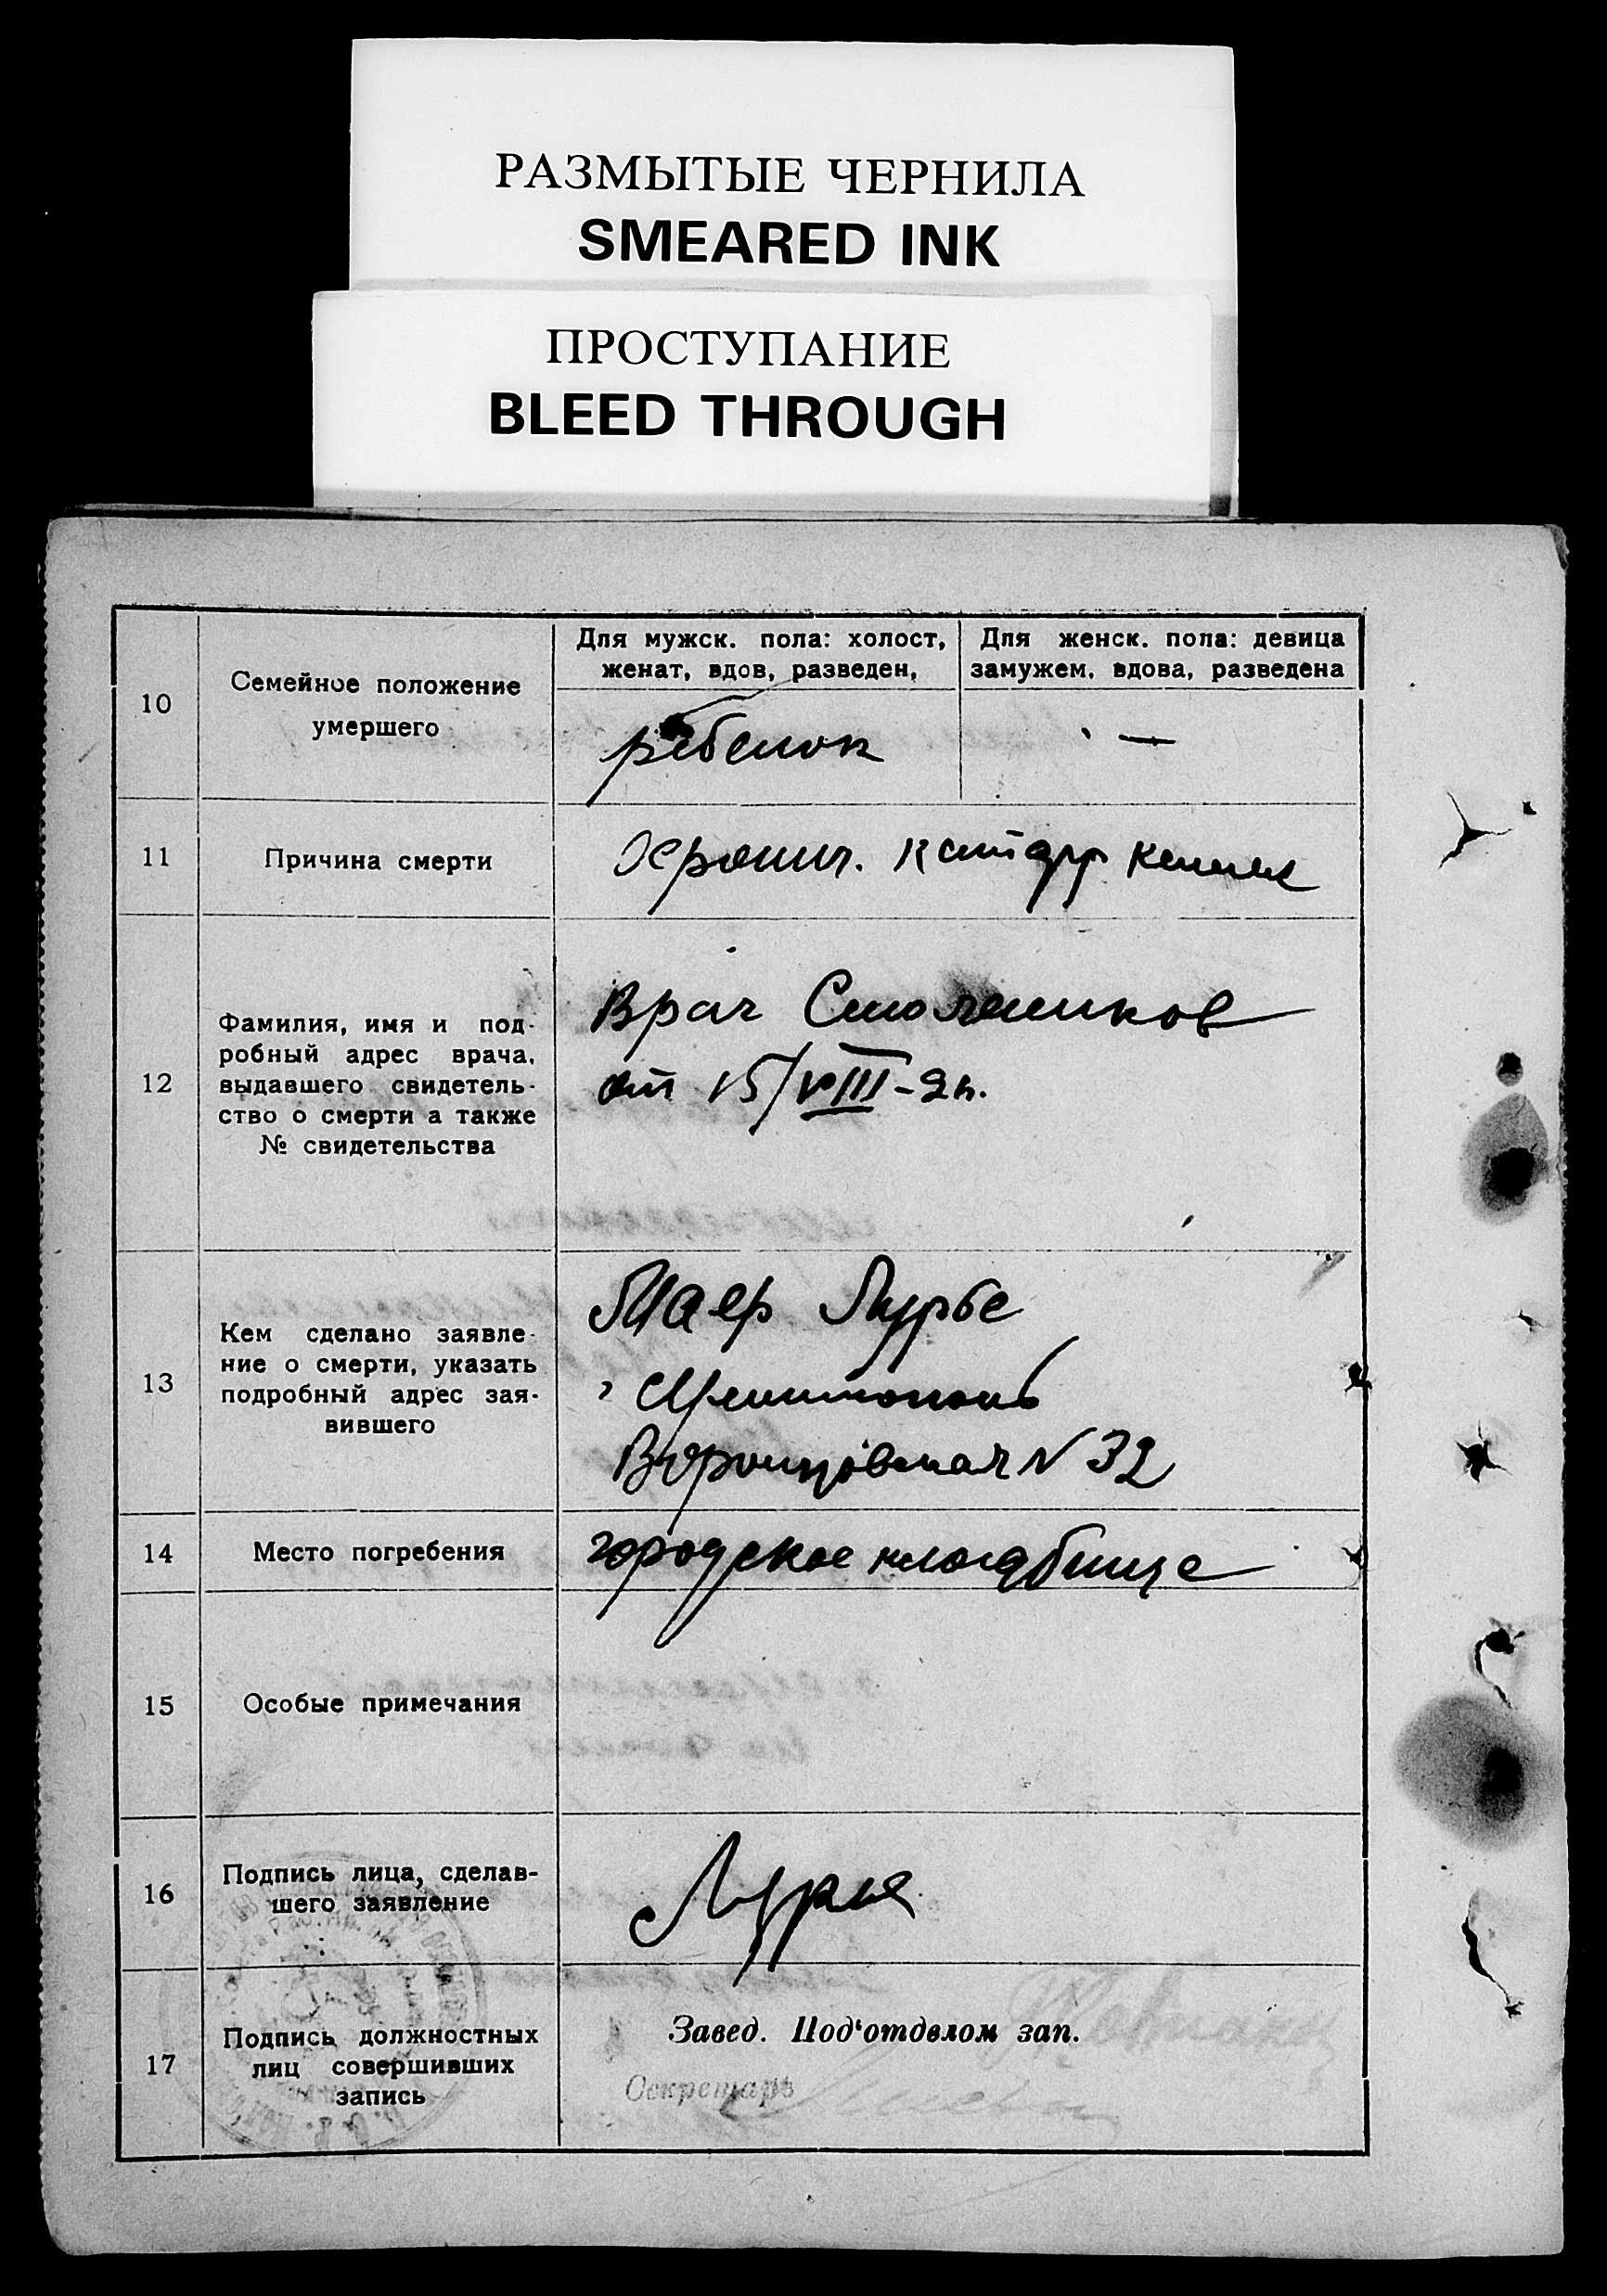 РАЗМЫТЫЕ ЧЕРНИЛА
SMEARED INK
ПРОСТУПАНИЕ
BLEED THROUGH
10
Семейное положение
умершего
Для мужск. пола: холост,
женат, вдов, разведен,
Для женск. пола: девица
замужем, вдова, разведена
ребенок
—
11
Причина смерти
Хронич. катарр кишек
12
Фамилия, имя и под-
робный адрес врача,
выдавшего свидетель-
ство о смерти а также
№ свидетельства
Врач
от 15/VIII-
13
Кем сделано заявле-
ние о смерти, указать
подробный адрес зая-
вившего
Маер Лурье
Воронцовская N 32
14
Место погребения
городское кладбище
15
Особые примечания
16
Подпись лица, сделав-
шего заявление
Лурье
17
Подпись должностных
лиц совершивших
запись
Завед. Под'отделом зап.
Секретарь